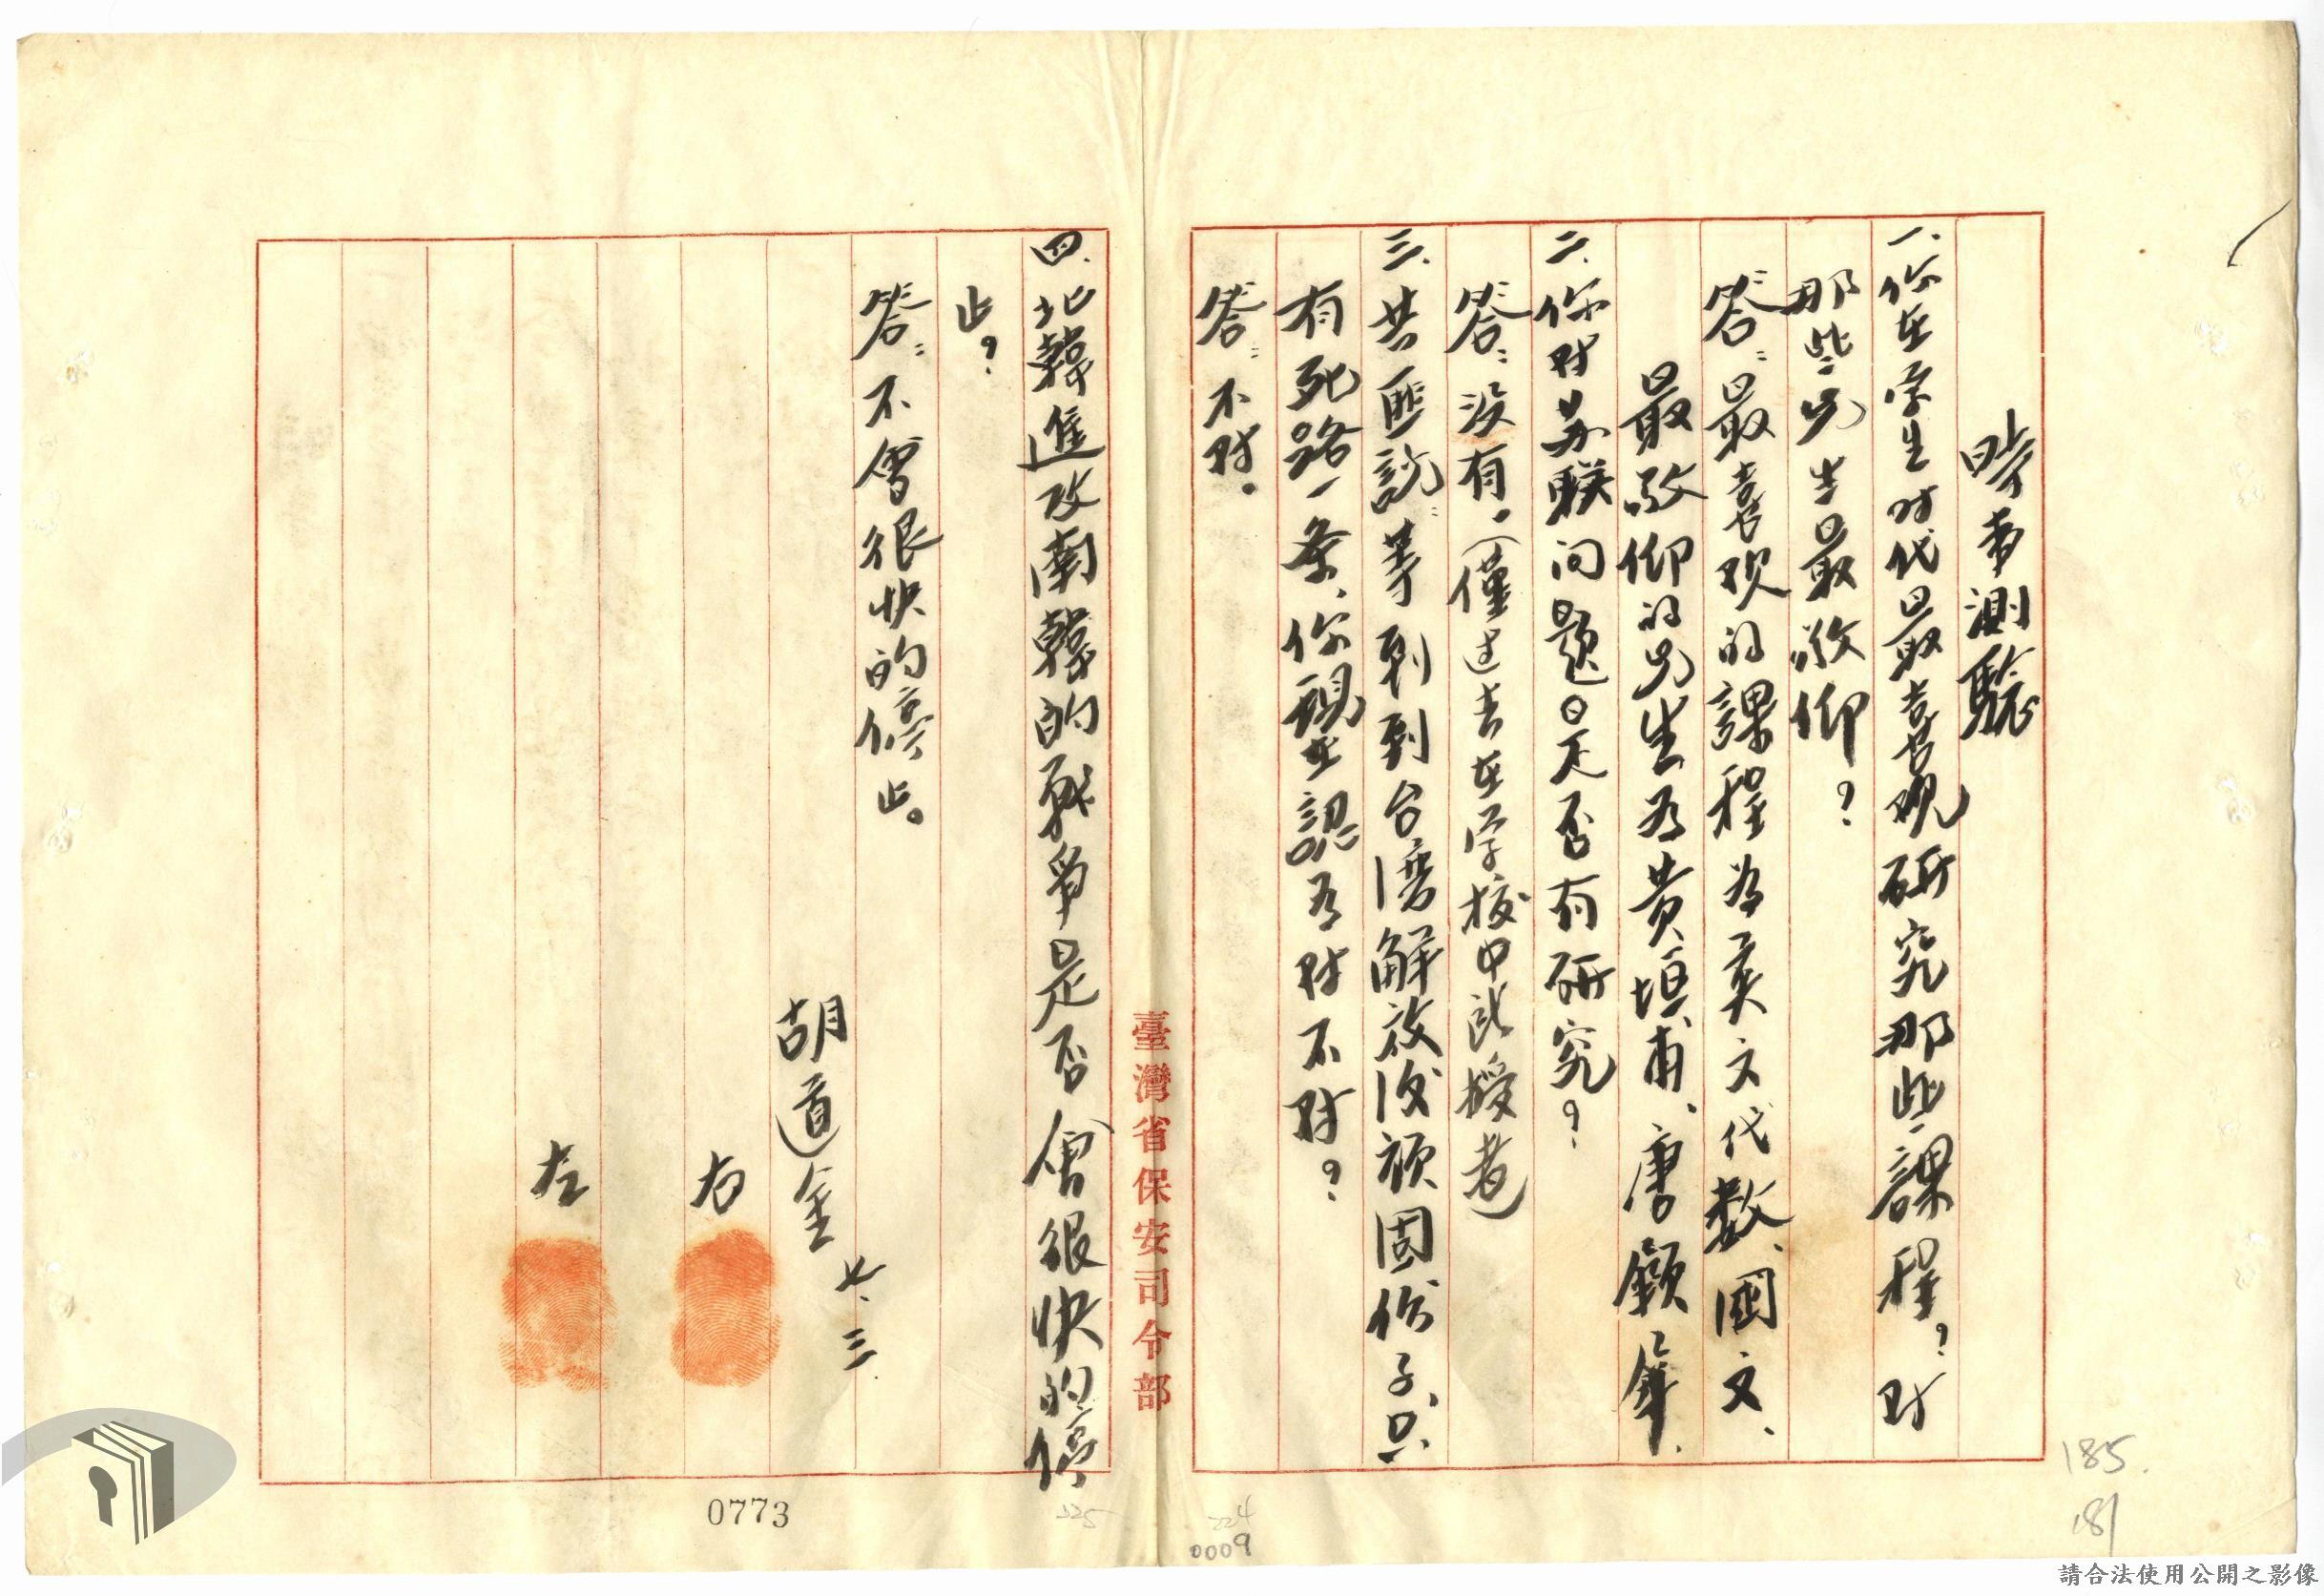 時事測驗
一、你在学生时代最喜欢研究那些課程？对
那些先生最敬仰？
答：最喜欢的課程为英文代数、國文、
最敬仰的先生为黄填甫、唐
二、你对苏联问题是否有研究？
答：没有。（僅过去在学校中
三、共匪説：等到到台湾解放後頑固份子、只
有死路一条、你現在認为对不对？
答：不对。
四、北韓進攻南韓的戰争是否會很快的停
止？
答：不會很快的停止。
胡道金 七、三
右
左
臺灣省保安司令部
0773
225
224
0009
185.
181
請合法使用公開之影像